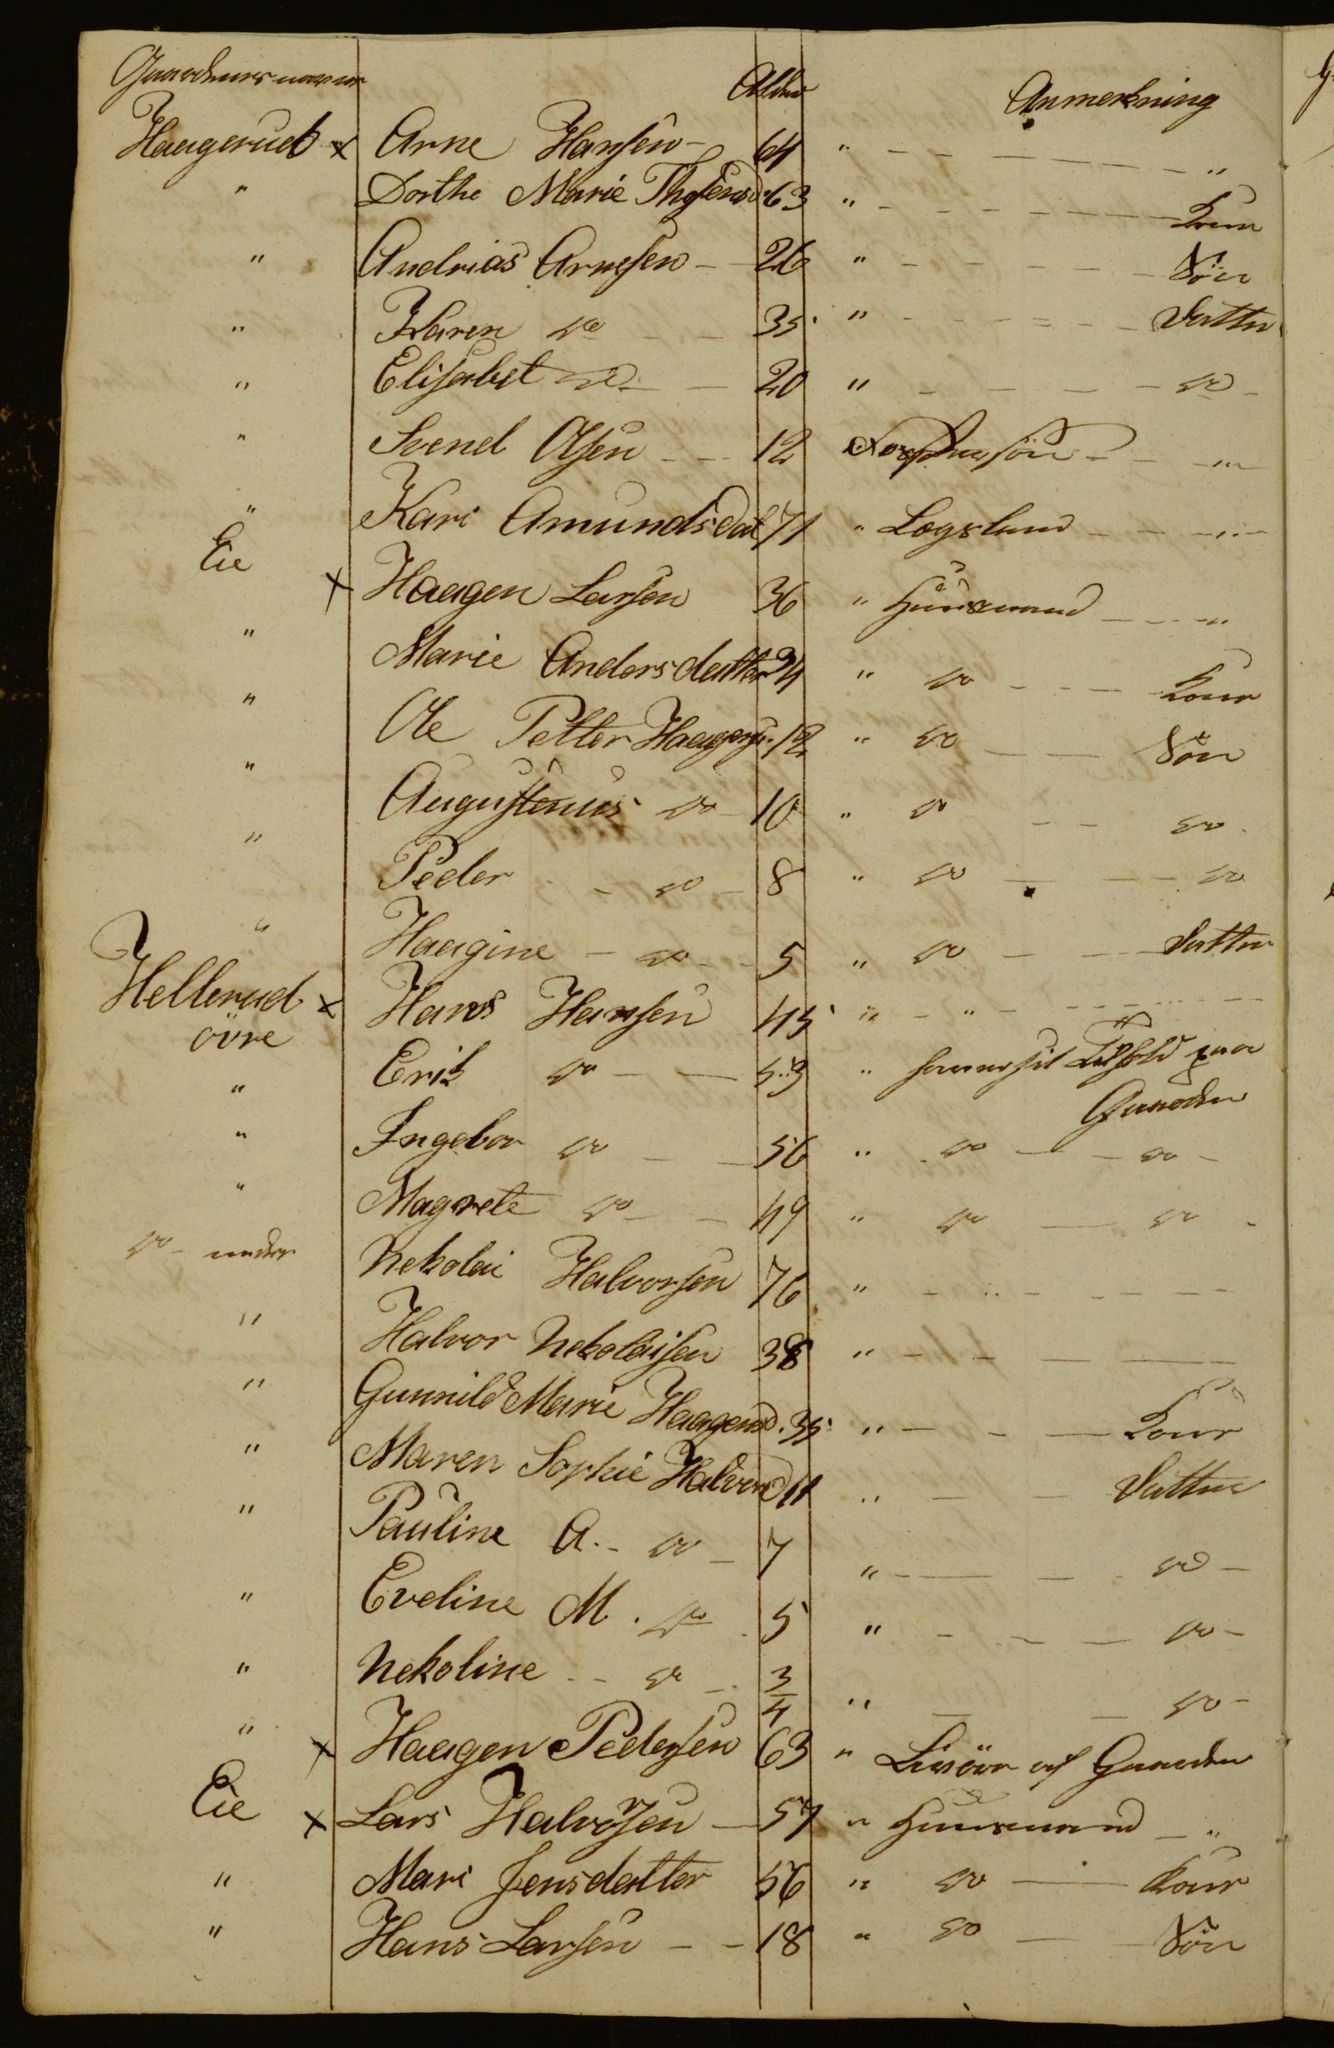 Gaardenesnavne Alder Anmerkning
Haagerud x Arne Hansen - 64 " - - - - - "
" Dorthe Marie Thosensd. 63 " - - - - - Kone
" Andrias Arnesen - 26 " - - - - - Søn
" Karen do - - 35 " - - - - - Datter
" Elisabet do - - 20 " - - - - - do -
" Svend Olsen - - 12 - - "
" Kari Amundsdat 71 " Lægslem - - " -
Eie x Haagen Larsen 36 " Huusmand - - "
" Marie Andersdatter 34 " do - - - Kone
" Ole Petter Haagens. 12 " do - - Søn
" Augustenius do - 10 " do - - do.
" Peder - do - 8 " do - - - do
" Haagine - do - - 5 " do - - - Datter
Hellerud x Hans Hansen 45 " - " - - - -
øvre
" Erik do - - 53 " haver sit Tilhold paa
Gaarden
" Ingebor do - - 56 " do - - do -
" Magrete do - - 49 " do - do -
do - nedre Nekolai Halvorsen 76 " - " - - - -
" Halvor Nekolaisen 38 " - - - -
" Gunnild Marie Haagensd. 35 " - - - Kone
" Maren Sophie Halvorsd 11 " - - Datter
" Pauline A. - do - 7 " - - do -
" Eveline M. do - 5 " - - - do -
" Nekoline - - do - 3/4 " - - do -
" x Haagen Pedersen 63 " Livøre af Gaarden
Eie x Lars Halvorsen - 57 " Huusmand - "
" Mari Jensdatter 56 " do - Kone
" Hans Larsen - - 18 " do - - Søn